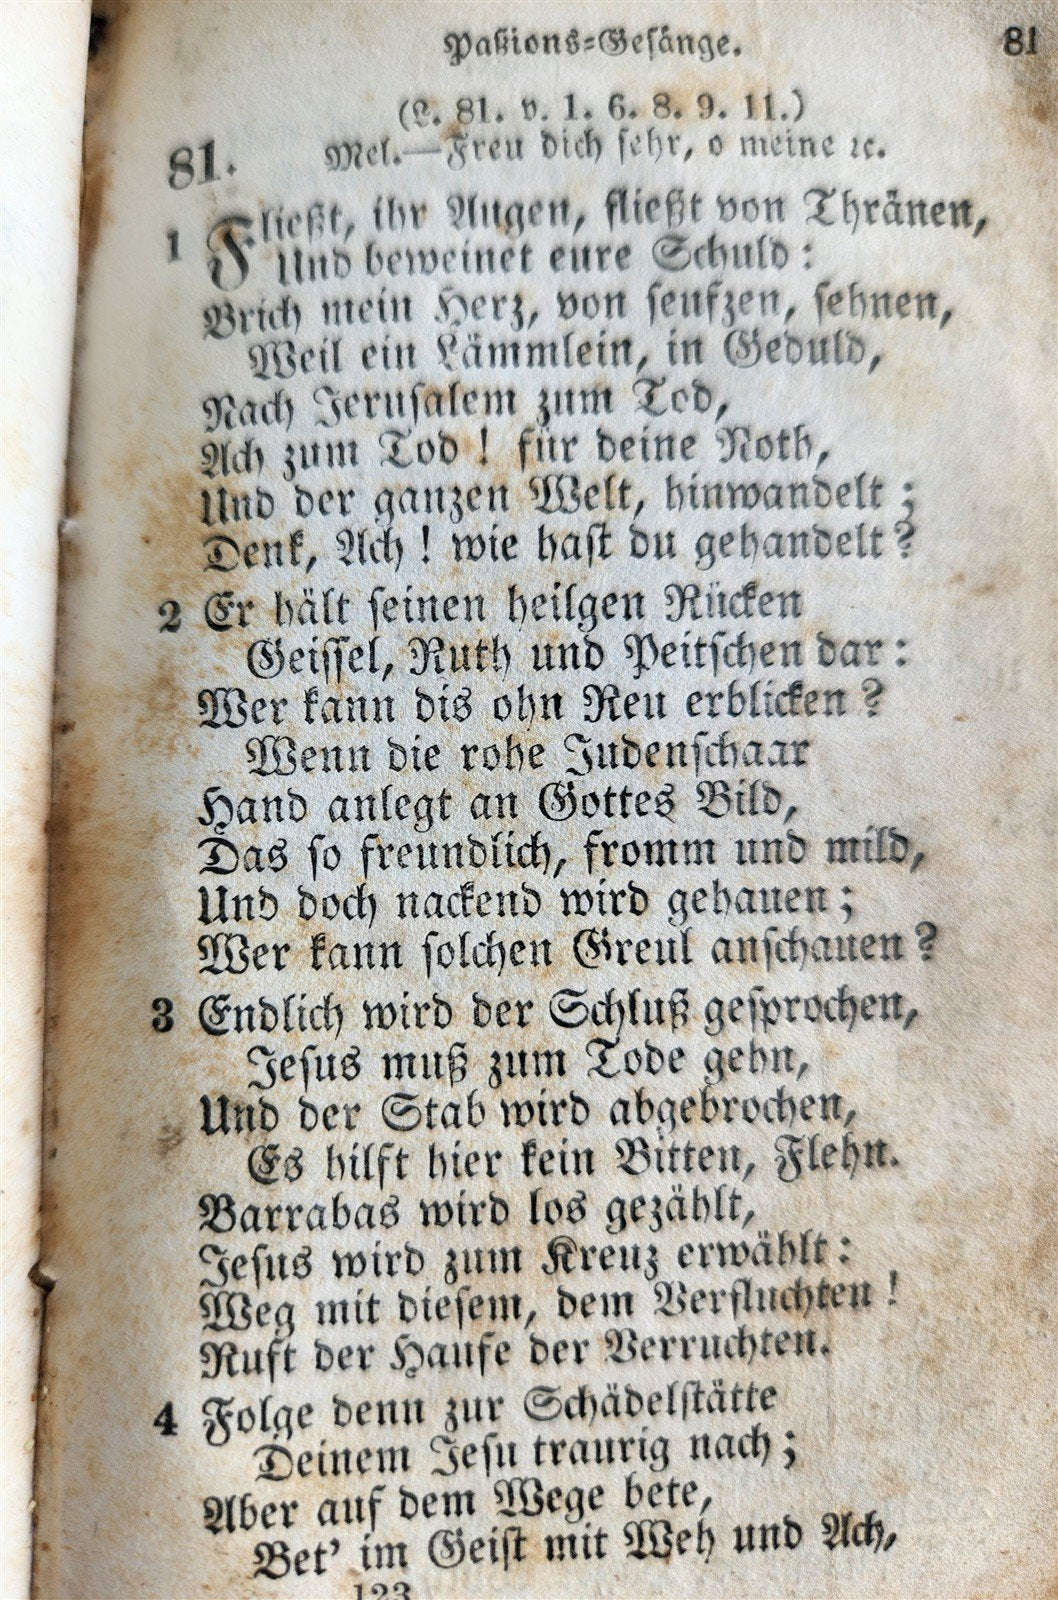 Paßions-Gesänge. 81
(L. 81. v. 1. 6. 8. 9. 11.)
81. Mel.—Freu dich sehr, o meine ꝛc.
1 Fließt, ihr Augen, fließt von Thränen,
Und beweinet eure Schuld:
Brich mein Herz, von seufzen, sehnen,
Weil ein Lämmlein, in Geduld,
Nach Jerusalem zum Tod,
Ach zum Tod! für deine Noth,
Und der ganzen Welt, hinwandelt;
Denk, Ach! wie hast du gehandelt?
2 Er hält seinen heilgen Rücken
Geissel, Ruth und Peitschen dar:
Wer kann dis ohn Reu erblicken?
Wenn die rohe Judenschaar
Hand anlegt an Gottes Bild,
Das so freundlich, fromm und mild,
Und doch nackend wird gehauen;
Wer kann solchen Greul anschauen?
3 Endlich wird der Schluß gesprochen,
Jesus muß zum Tode gehn,
Und der Stab wird abgebrochen,
Es hilft hier kein Bitten, Flehn.
Barrabas wird los gezählt,
Jesus wird zum Kreuz erwählt:
Weg mit diesem, dem Verfluchten!
Ruft der Haufe der Verruchten.
4 Folge denn zur Schädelstätte
Deinem Jesu traurig nach;
Aber auf dem Wege bete,
Bet' im Geist mit Weh und Ach,
123